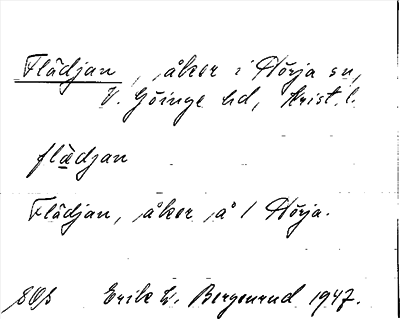 Flädjan, åker i Hörja sn,
V. Göinge hd, Krist. l.
flädjan
Flädjan, åker å 1 Hörja.
Erik W. Bergenrud 1947.